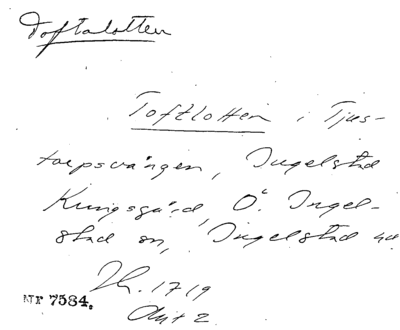 Toftalotten
Toftlotten i Tjus-
torpsvången, Ingelstad
Kungsgård, Ö. Ingel-
stad sn, Ingelstad hd
1719
Nr 7584.
Akt 2